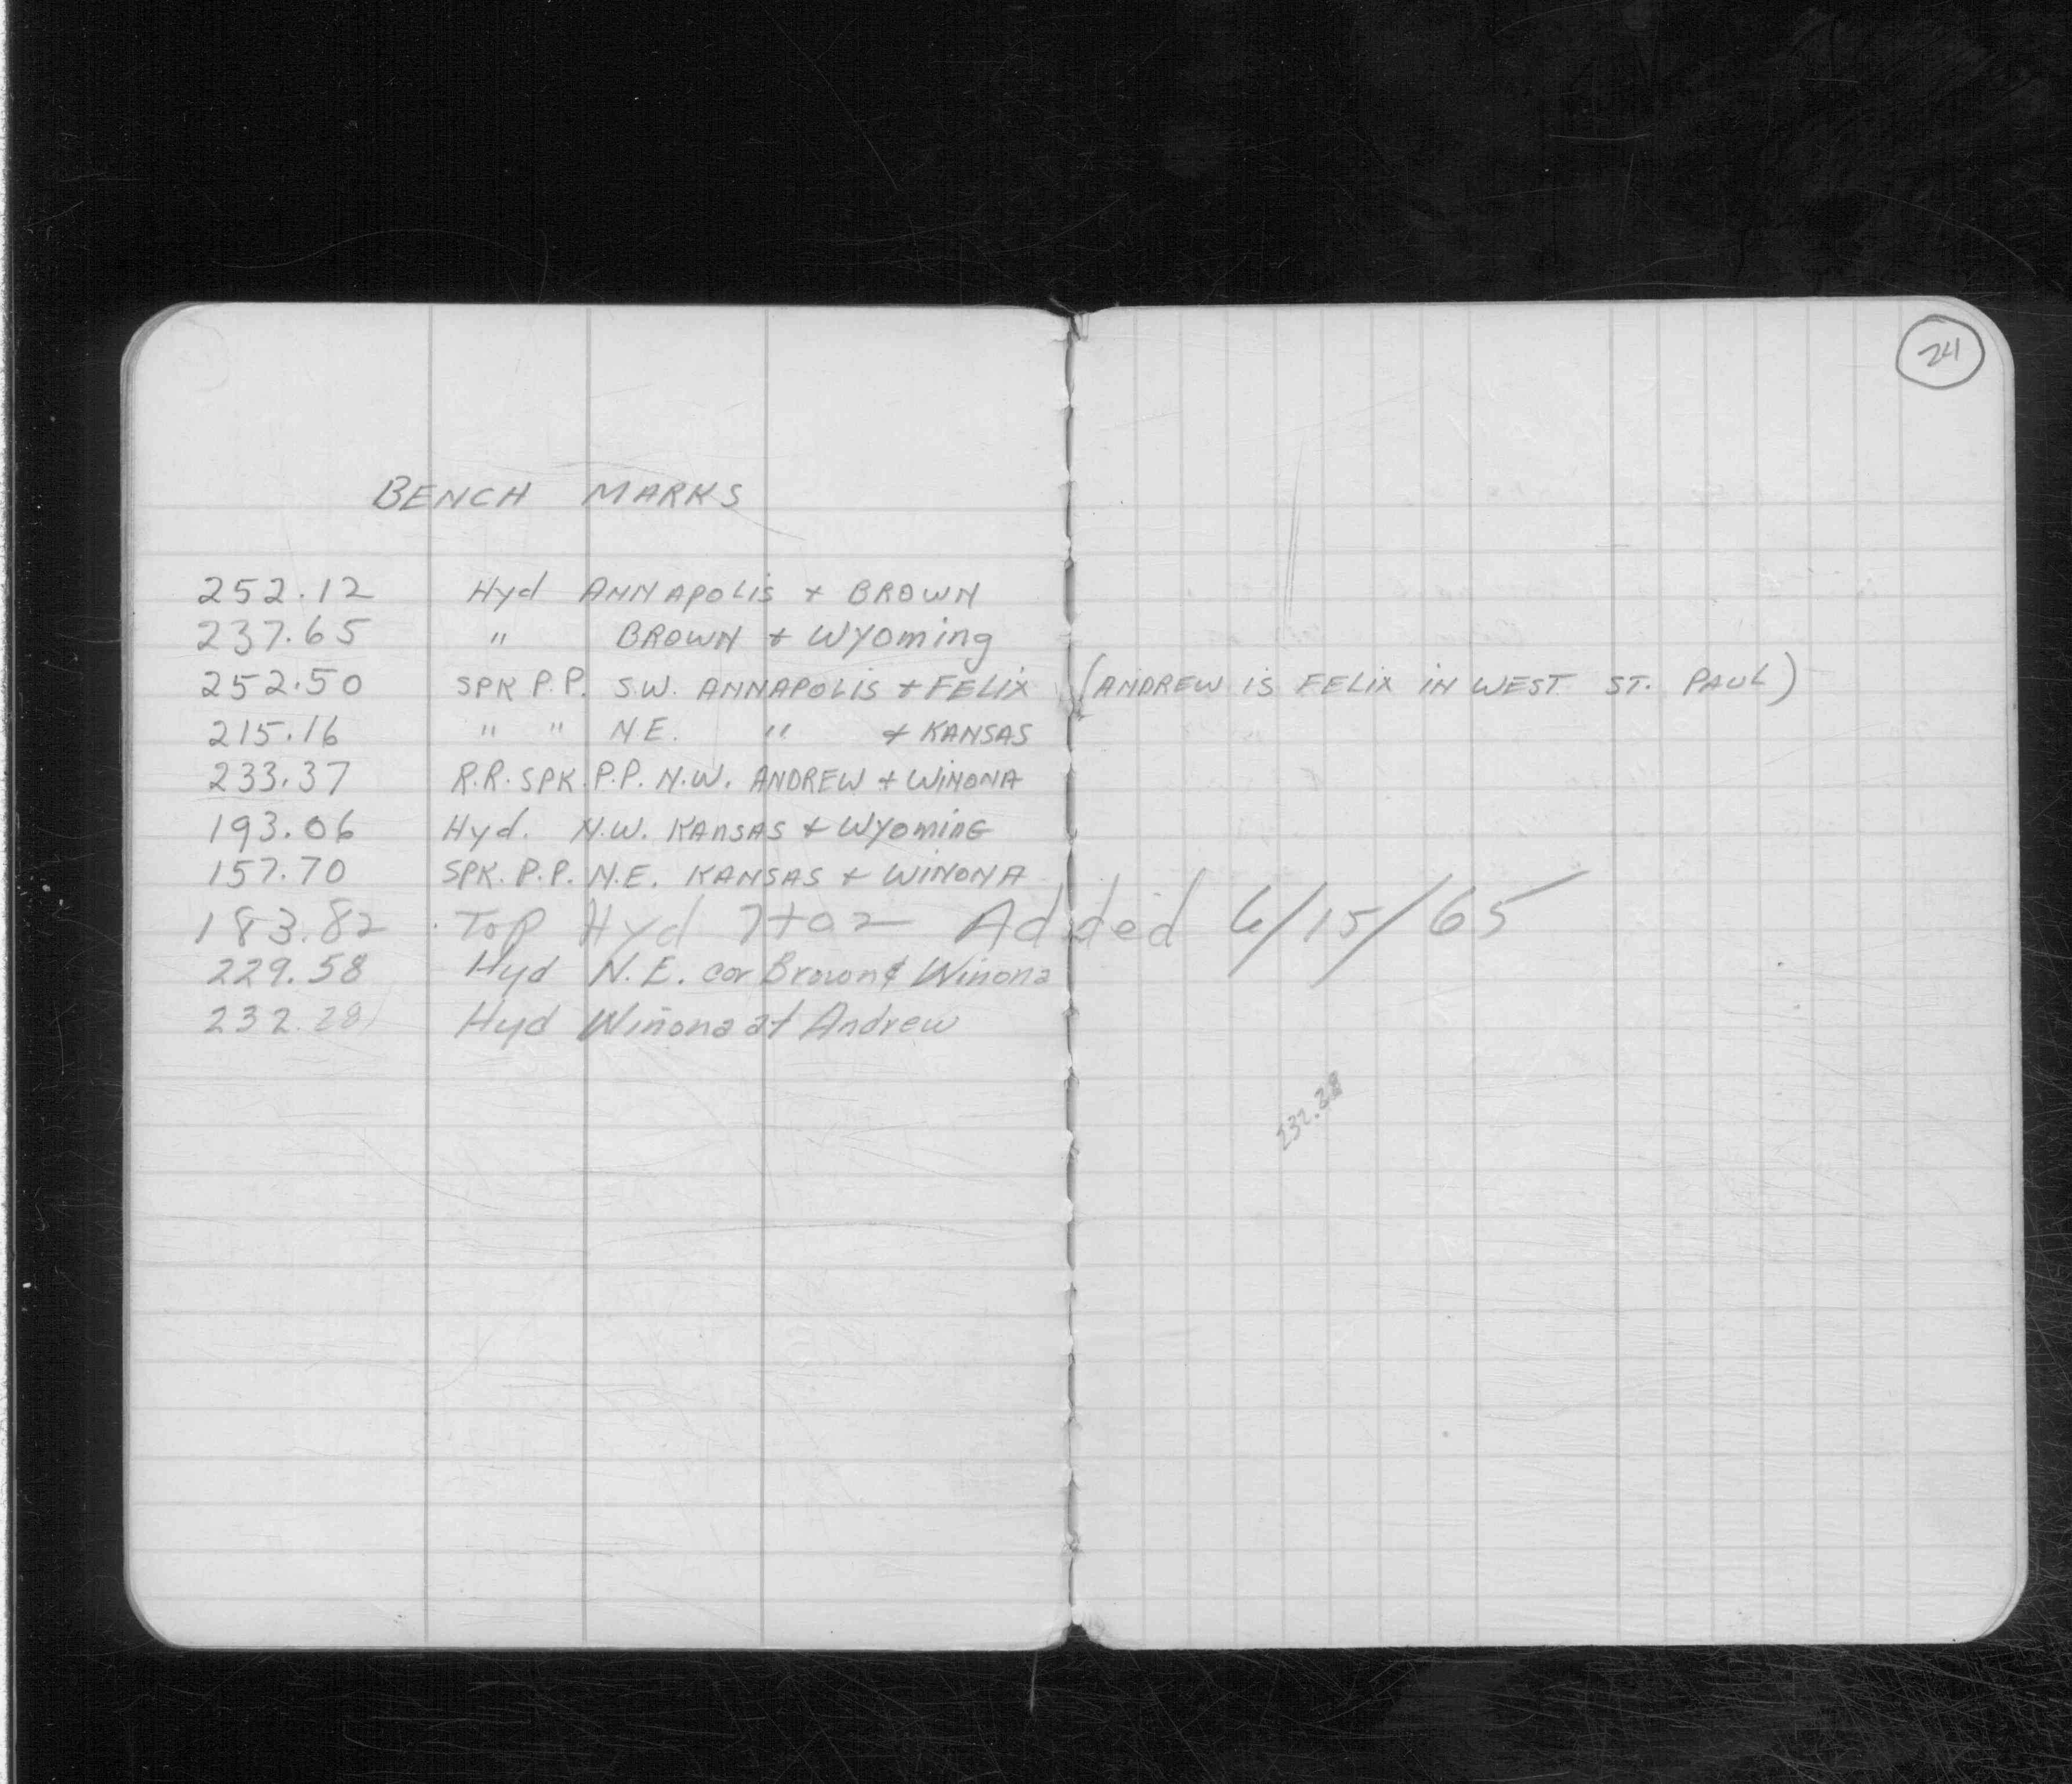 24
BENCH MARKS
252.12 Hyd ANNAPOLIS + BROWN
237.65 " BROWN + Wyoming
252.50 SPK P.P. S.W. ANNAPOLIS + FELIX (ANDREW IS FELIX IN WEST ST. PAUL)
215.16 " " N.E. " + KANSAS
233.37 R.R. SPK. P.P. N.W. ANDREW + WINONA
193.06 Hyd. N.W. KANSAS + WYOMING
157.70 SPK. P.P. N.E. KANSAS + WINONA
183.82 Top Hyd 7+02 Added 6/15/65
229.58 Hyd N.E. cor Brown & Winona
232.28 Hyd Winona at Andrew
232.28